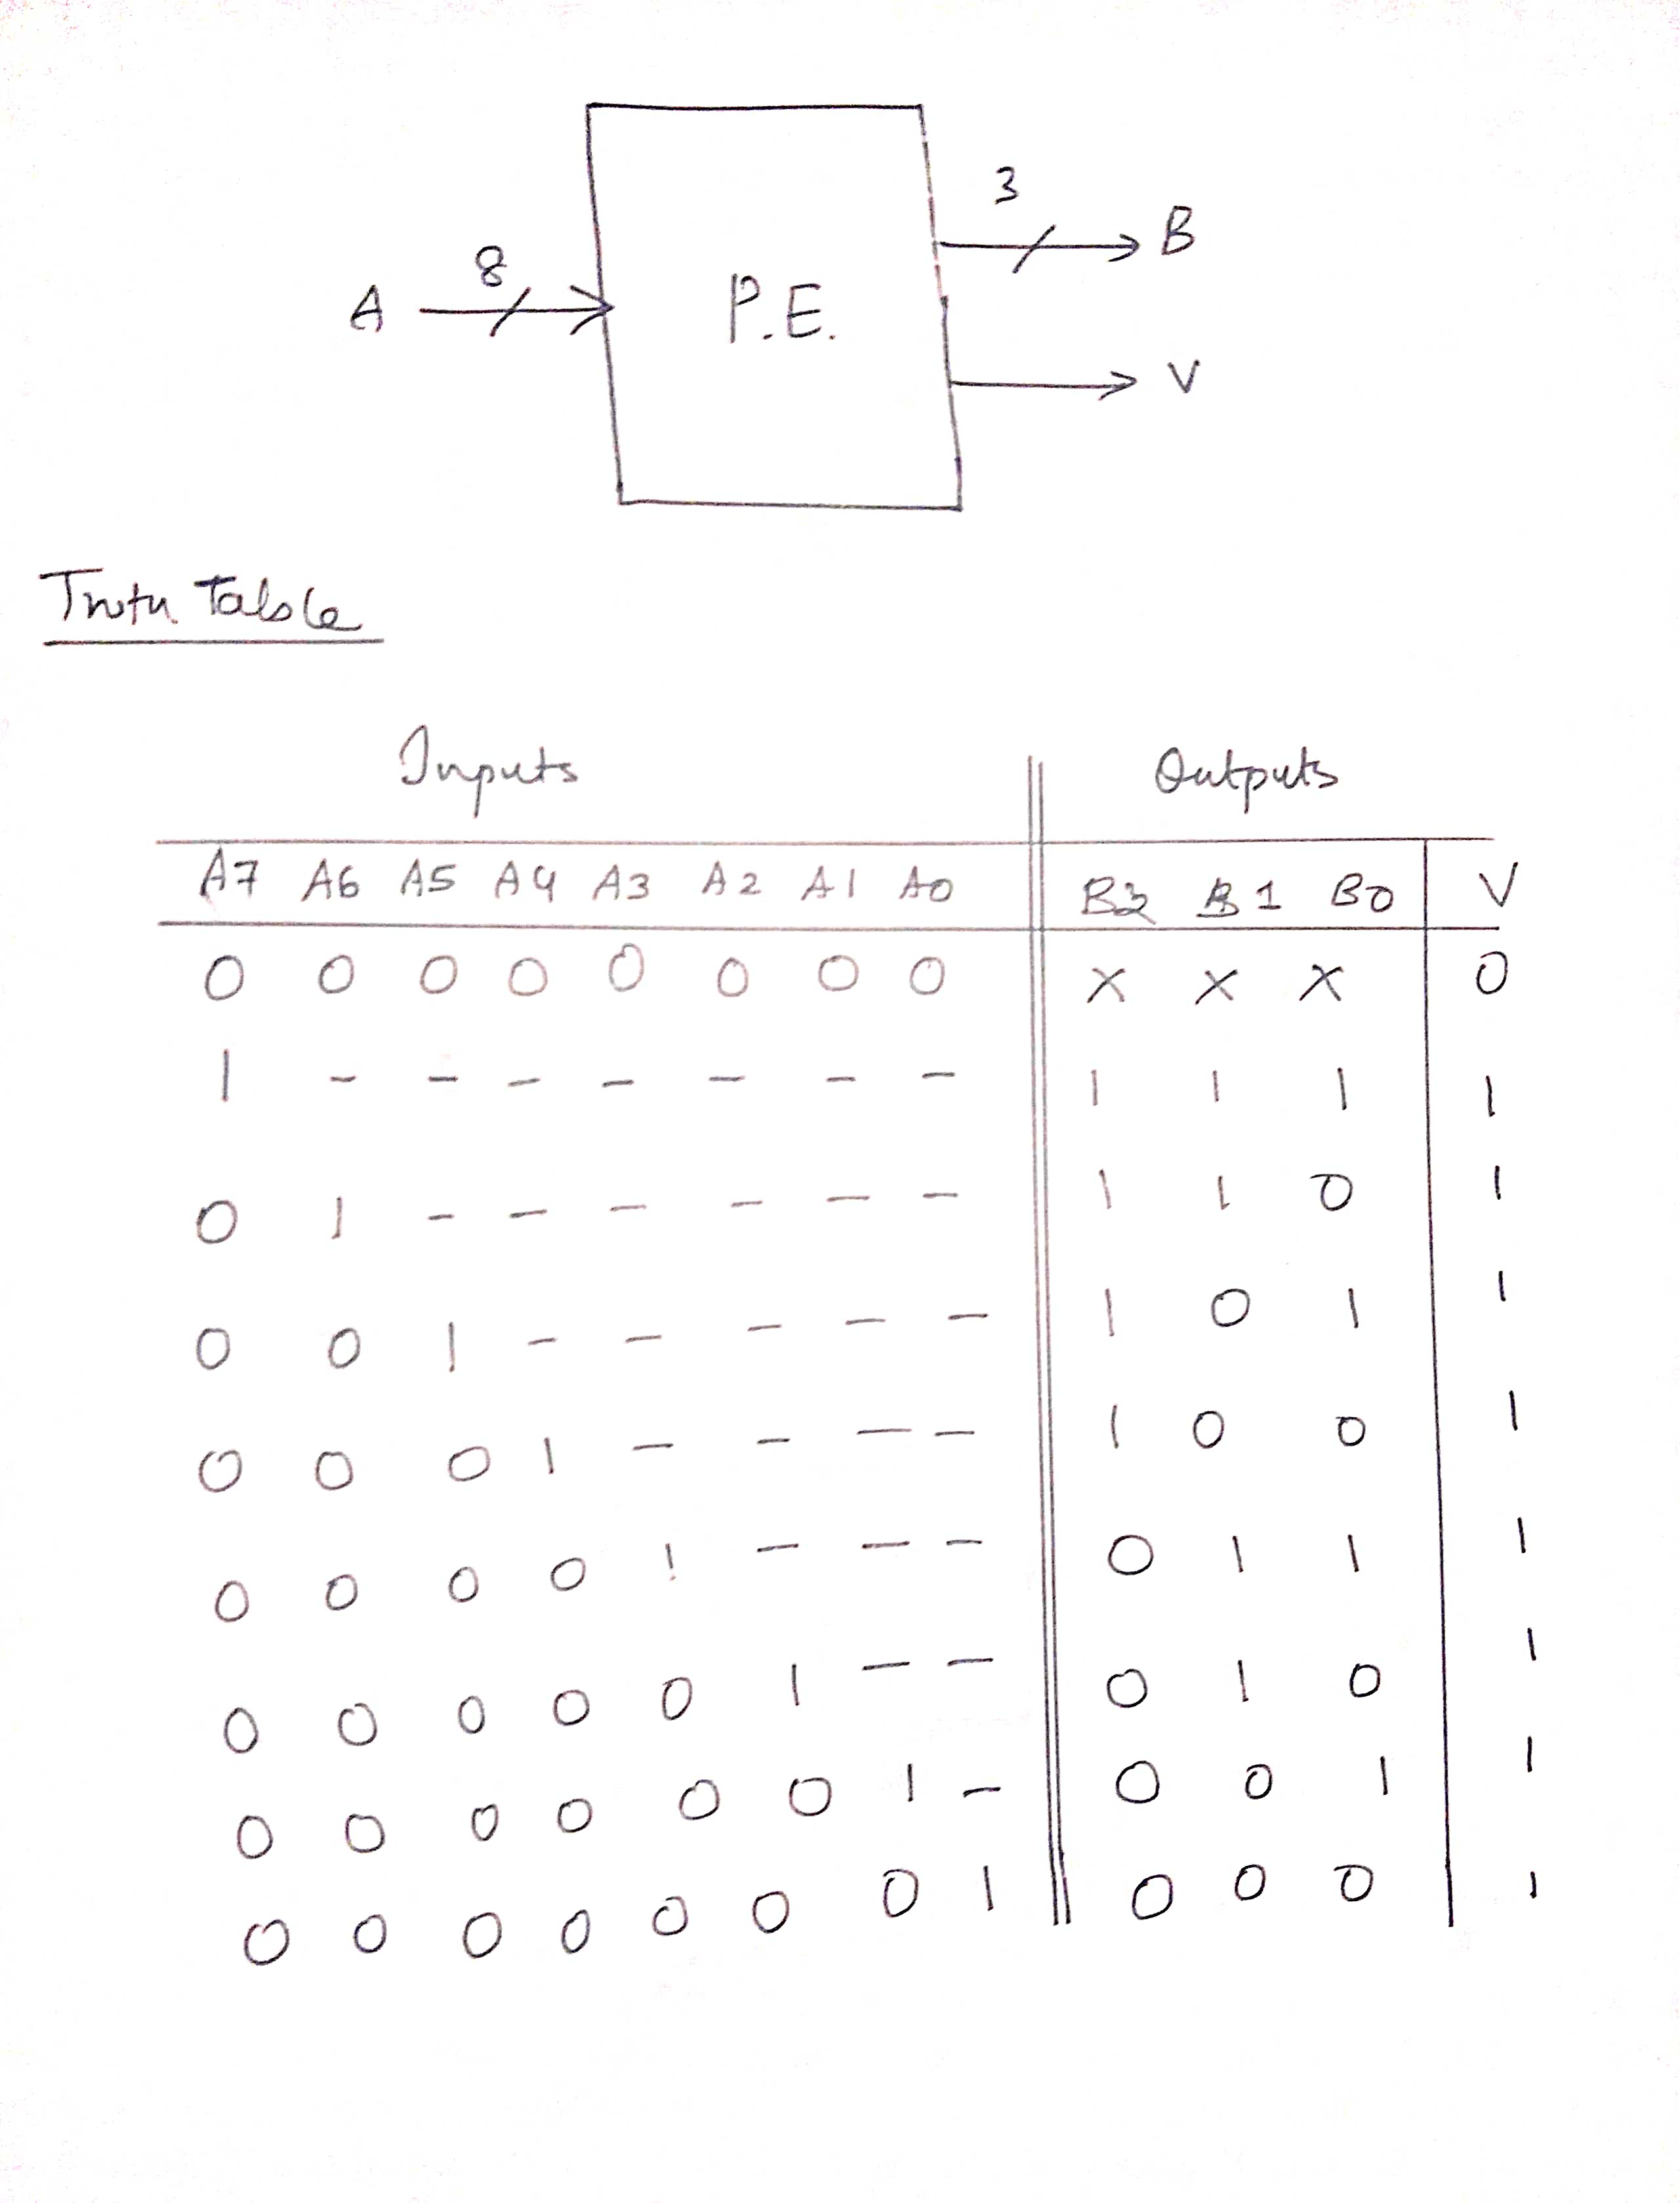 3
B
8
A
P.E.
V
Truth Table
Inputs Outputs
A7 A6 A5 A4 A3 A2 A1 A0 B2 B1 B0 V
0 0 0 0 0 0 0 0 x x x 0
1 - - - - - - - 1 1 1 1
0 1 - - - - - - 1 1 0 1
0 0 1 - - - - - 1 0 1 1
0 0 0 1 - - - - 1 0 0 1
0 0 0 0 1 - - - 0 1 1 1
0 0 0 0 0 1 - - 0 1 0 1
0 0 0 0 0 0 1 - 0 0 1 1
0 0 0 0 0 0 0 1 0 0 0 1